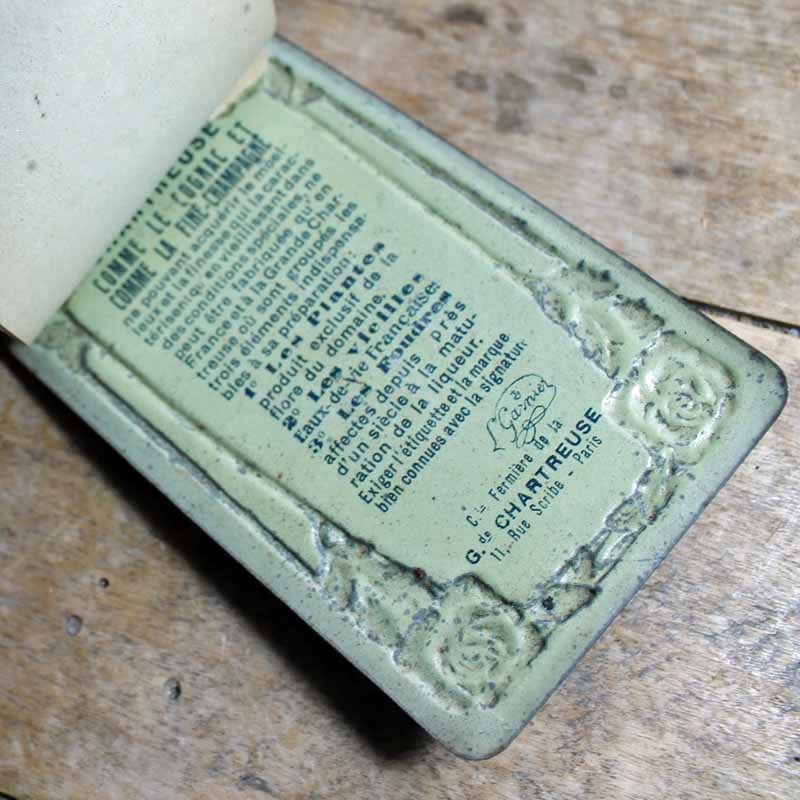 CHARTREUSE
COMME LE COGNAC ET
COMME LA FINE-CHAMPAGNE
ne pouvant acquérir le moel-
leux et la finesse qui la carac-
térisent qu'en vieillissant dans
des conditions spéciales, ne
peut être fabriquée qu'en
France et à la Grande Char-
treuse où sont groupés les
trois éléments indispensa-
bles à sa préparation:
1º Les Plantes
produit exclusif de la
flore du domaine.
2º Les vieilles
Eaux-de-vie Françaises
3º Les Foudres
affectés depuis près
d'un siècle à la matu-
ration de la liqueur.
Exiger l'étiquette et la marque
bien connues avec la signature
L Garnier
Cie Fermière de la
G. de CHARTREUSE
11, Rue Scribe - Paris